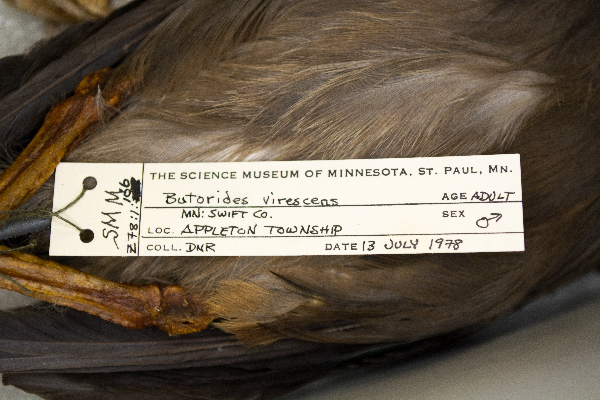 THE SCIENCE MUSEUM OF MINNESOTA, ST. PAUL, MN.
Butorides virescens AGE ADULT
MN: SWIFT CO. SEX ♂
LOC. APPLETON TOWNSHIP
COLL. DNR DATE 13 JULY 1978
SMM
Z78:1:196